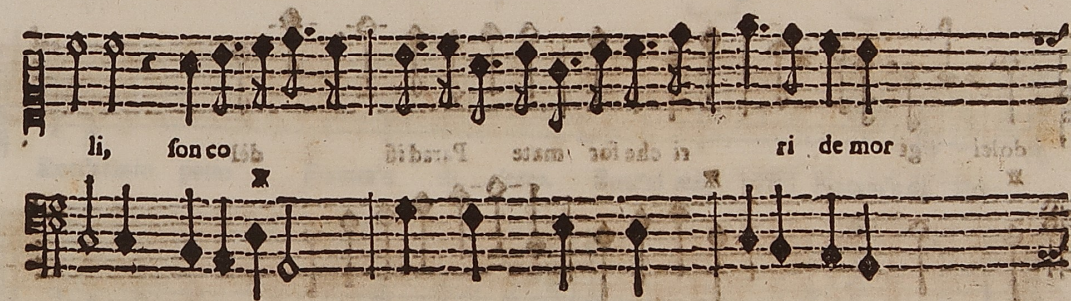 li, son co ri de mor